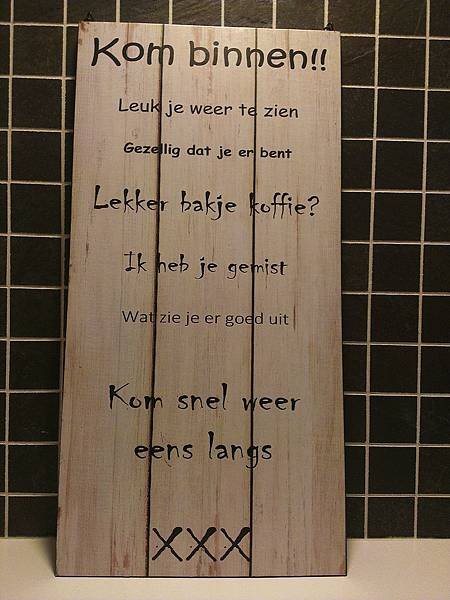 Kom binnen!!
Leuk je weer te zien
Gezellig dat je er bent
Lekker bakje koffie?
Ik heb je gemist
Wat zie je er goed uit
Kom snel weer
eens langs
XXX